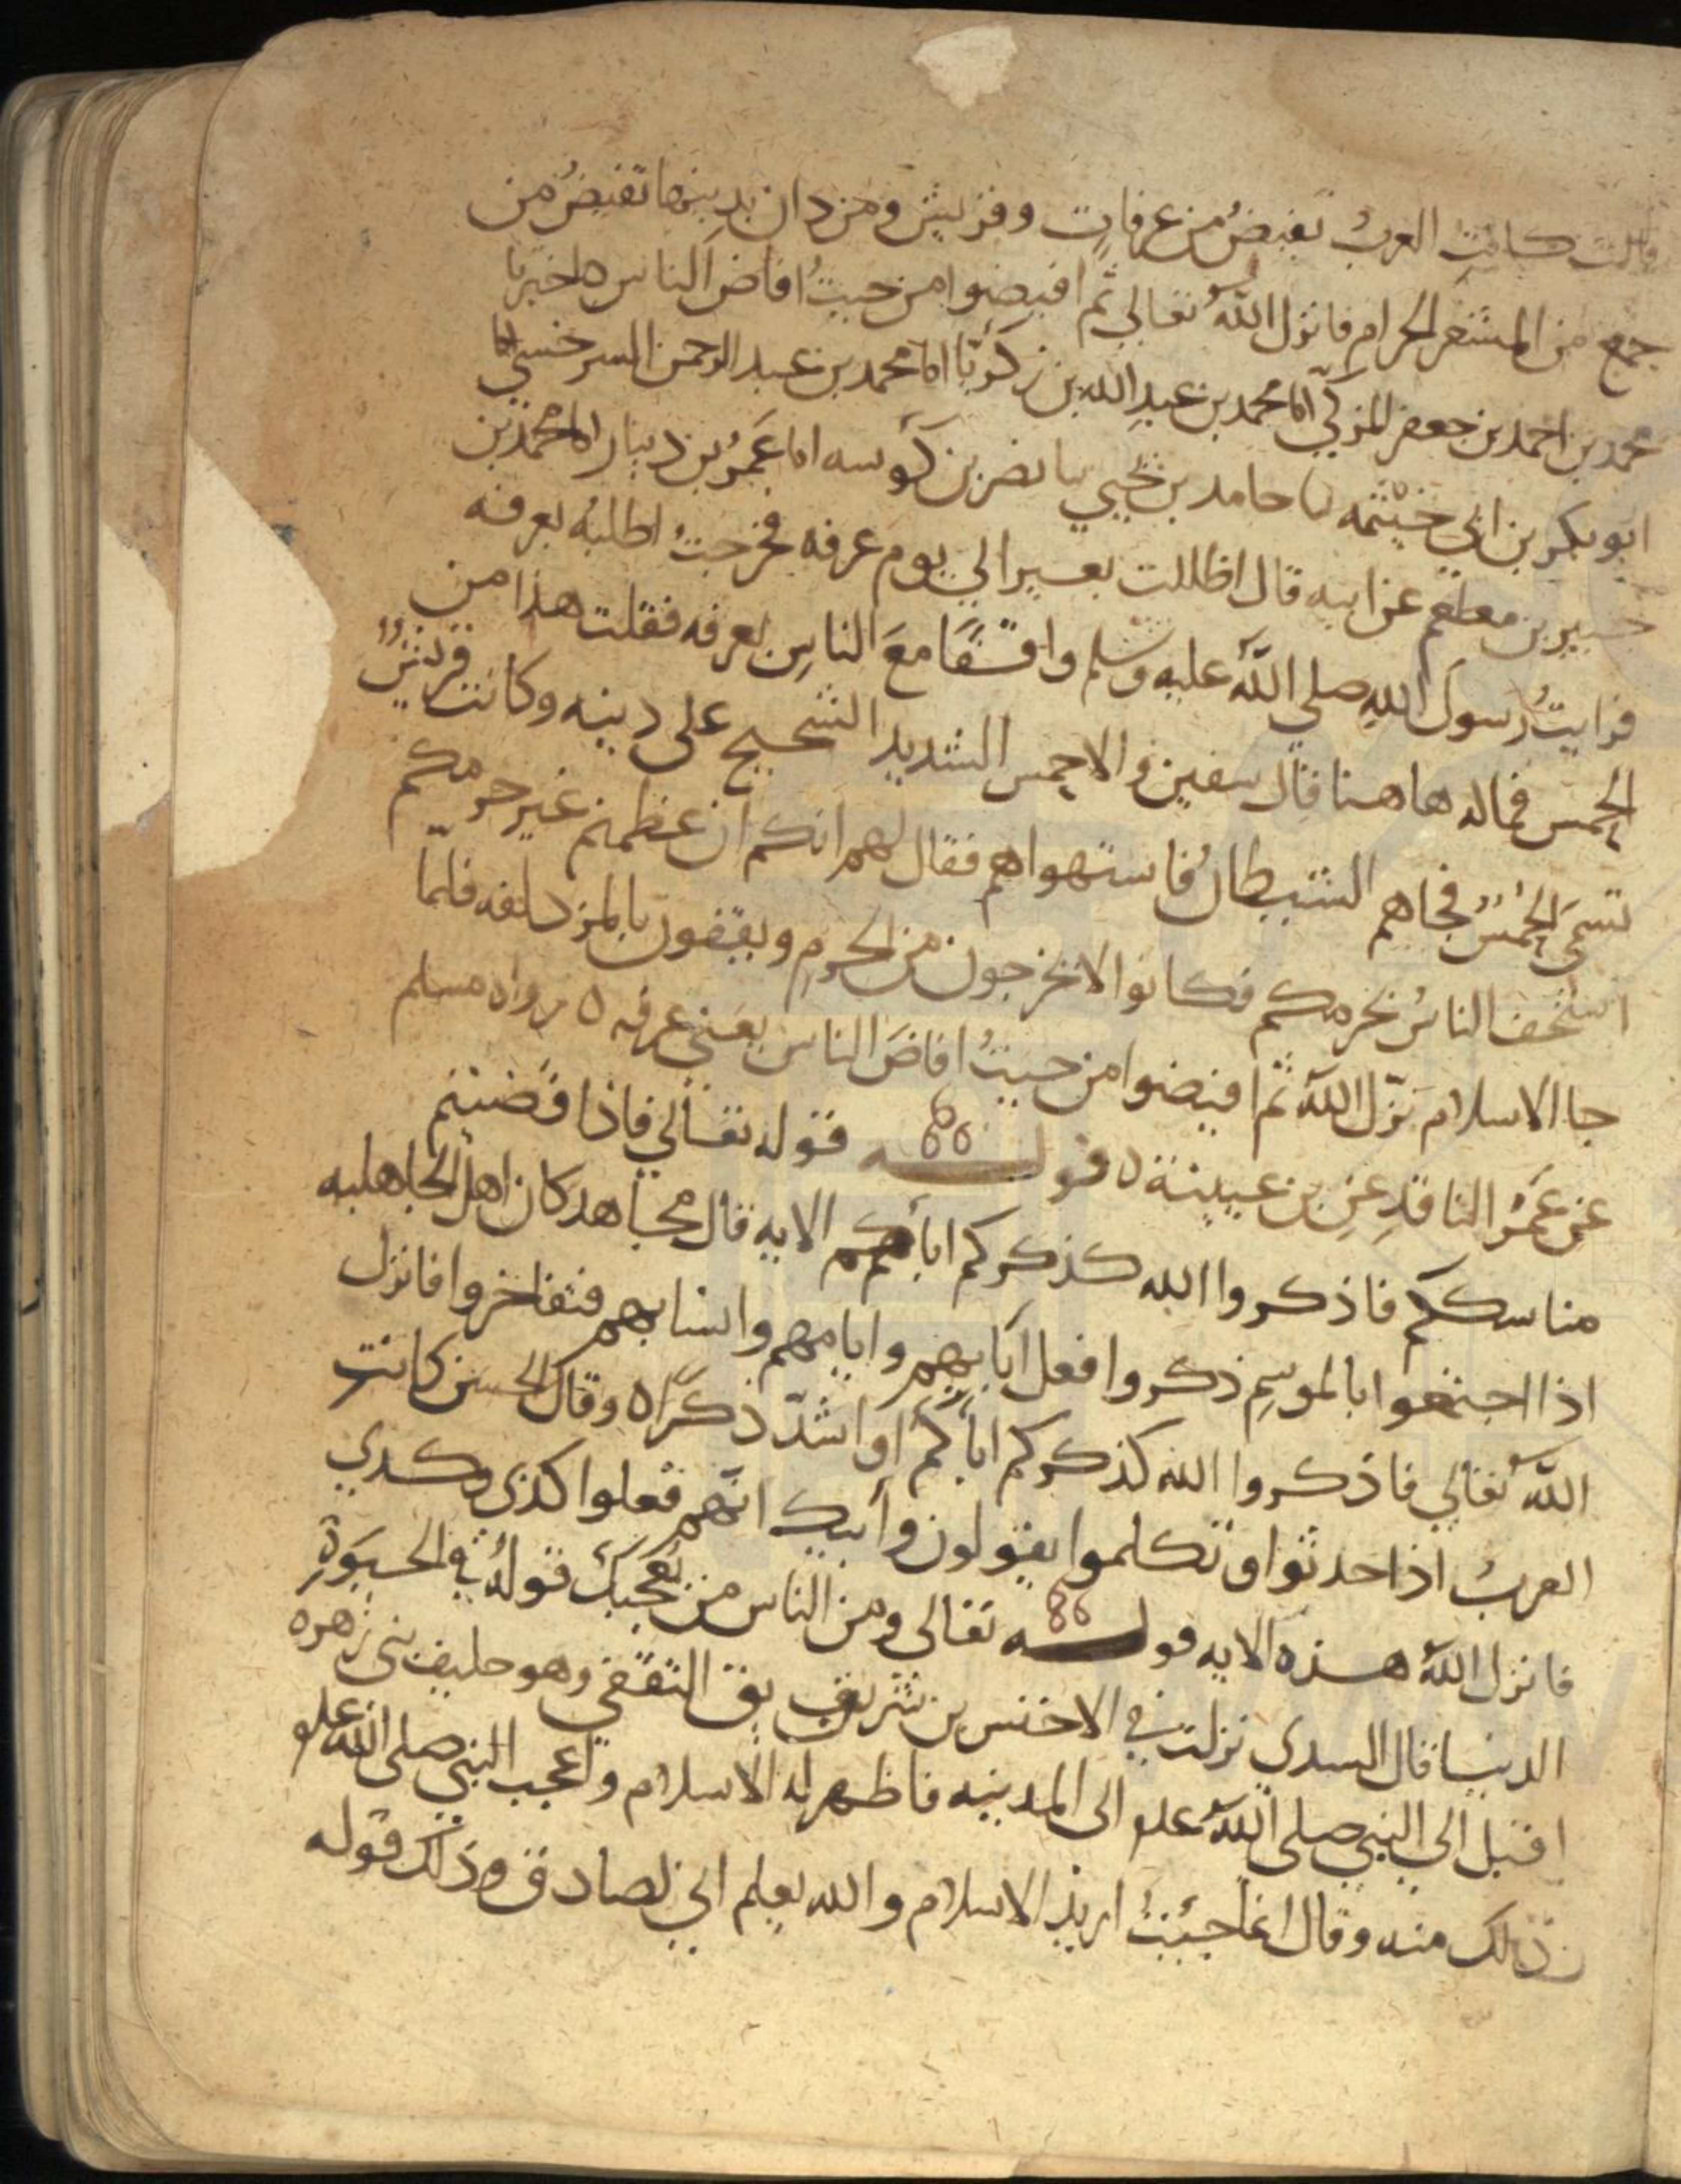 قالت كانت العربُ تفيضُ من عرفاتٍ وقريش ومن دان بدينها تفيضُ من
جمع من المشعر الحرام فانزل اللهُ تعالى ثم افيضوا من حيثُ افاض الناس ه اخبرنا
محمد بن احمد بن جعفر المزكي انا محمد بن عبدِ الله بن زكريا انا محمد بن عبد الرحمن السرخسي نا
ابو بكر بن ابي خيثمه نا حامد بن يحيى نا نصر بن كوسه انا عَمرُ بن دينار انا محمد بن
جبير بن مطعم عن ابيه قال اظللت بعيرا لي يوم عرفه فخرجتُ اطلبهُ بعرفه
فرايتُ رسولَ اللهِ صلى اللهُ عليه وسلم واقفًا معَ الناسِ بعرفه فقلت هذا من
الحمس فماله هاهنا قال سفين والاحمس الشديد الشحيح على دينه وكانت قريشُ
تسمى الحُمْسُ فجاهم الشيطانُ فاستهواهم فقال لهم انكم ان عظمتم غير حرمكم
استخف الناسُ بحرمكم فكانوا لا يخرجون من الحرمِ ويقفون بالمزدلفه فلمّا
جا الاسلام نزّل اللهُ ثم افيضوا من حيثُ افاضَ الناس يعني عرفه ه رواه مسلم
عن عَمرُ الناقدِ عن بن عيينة ه قولـــه قوله تعالي فاذا قضيتم
مناسككم فاذكروا الله كذكركم اباكم الايه قال مجاهد كان اهل الجاهليه
اذا اجتمعوا بالموسمِ ذكروا فعل آبايهم وايامهم وانسابهم فتفاخروا فانزل
اللهُ تعالي فاذكروا الله كذكركم اباكم او اشدّ ذكرًا ه وقال الحسن كانت
العربُ اذا حدثوا او تكلموا يقولون وأبيك انّهم فعلوا كذى وكدي
فانزل اللهُ هذه الايه قولـــه تعالى ومن الناس من يُعجبكَ قولهُ في الحيوةِ
الدنيا قال السدي نزلت في الاخنس بن شريق بق الثقفي وهو حليف بنى زهره
اقبل الي النبي صلى اللهُ علىه الى المدينه فاظهر له الاسلام واعجب النبي صلى الله علىه
ذلك منه وقال انما جيئتُ اريدُ الاسلام والله يعلم اني لصادق وذلك قوله